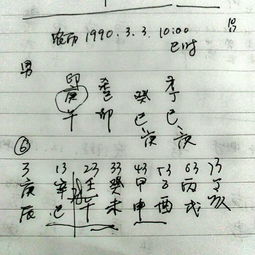 农历 1990.3.3. 10:00
巳时
男
印 才
庚 癸 丁
午 卯 巳 巳
亥 亥
⑥
3 13 23 33 43 53 63 73
庚 辛 壬 癸 甲 乙 丙 丁
辰 巳 午 未 申 酉 戌 亥